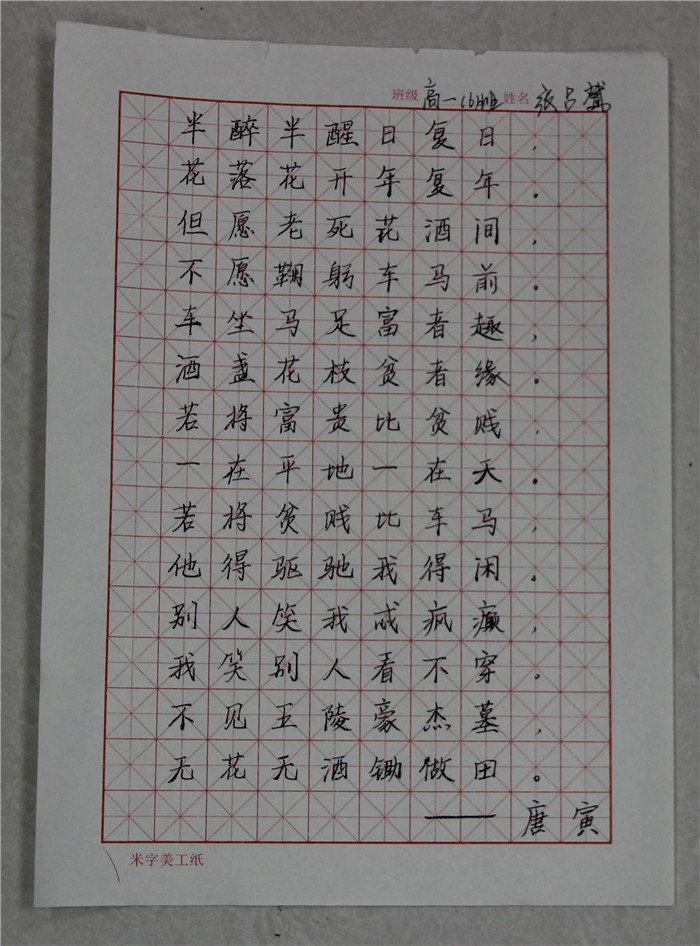 班级 高一(6)班 姓名 张占莺
半醉半醒日复日，
花落花开年复年。
但愿老死花酒间，
不愿鞠躬车马前。
车尘马足富者趣，
酒盏花枝贫者缘。
若将富贵比贫贱，
一在平地一在天。
若将贫贱比车马，
他得驱驰我得闲。
别人笑我忒疯癫，
我笑别人看不穿。
不见五陵豪杰墓，
无花无酒锄做田。
——唐寅
米字美工纸